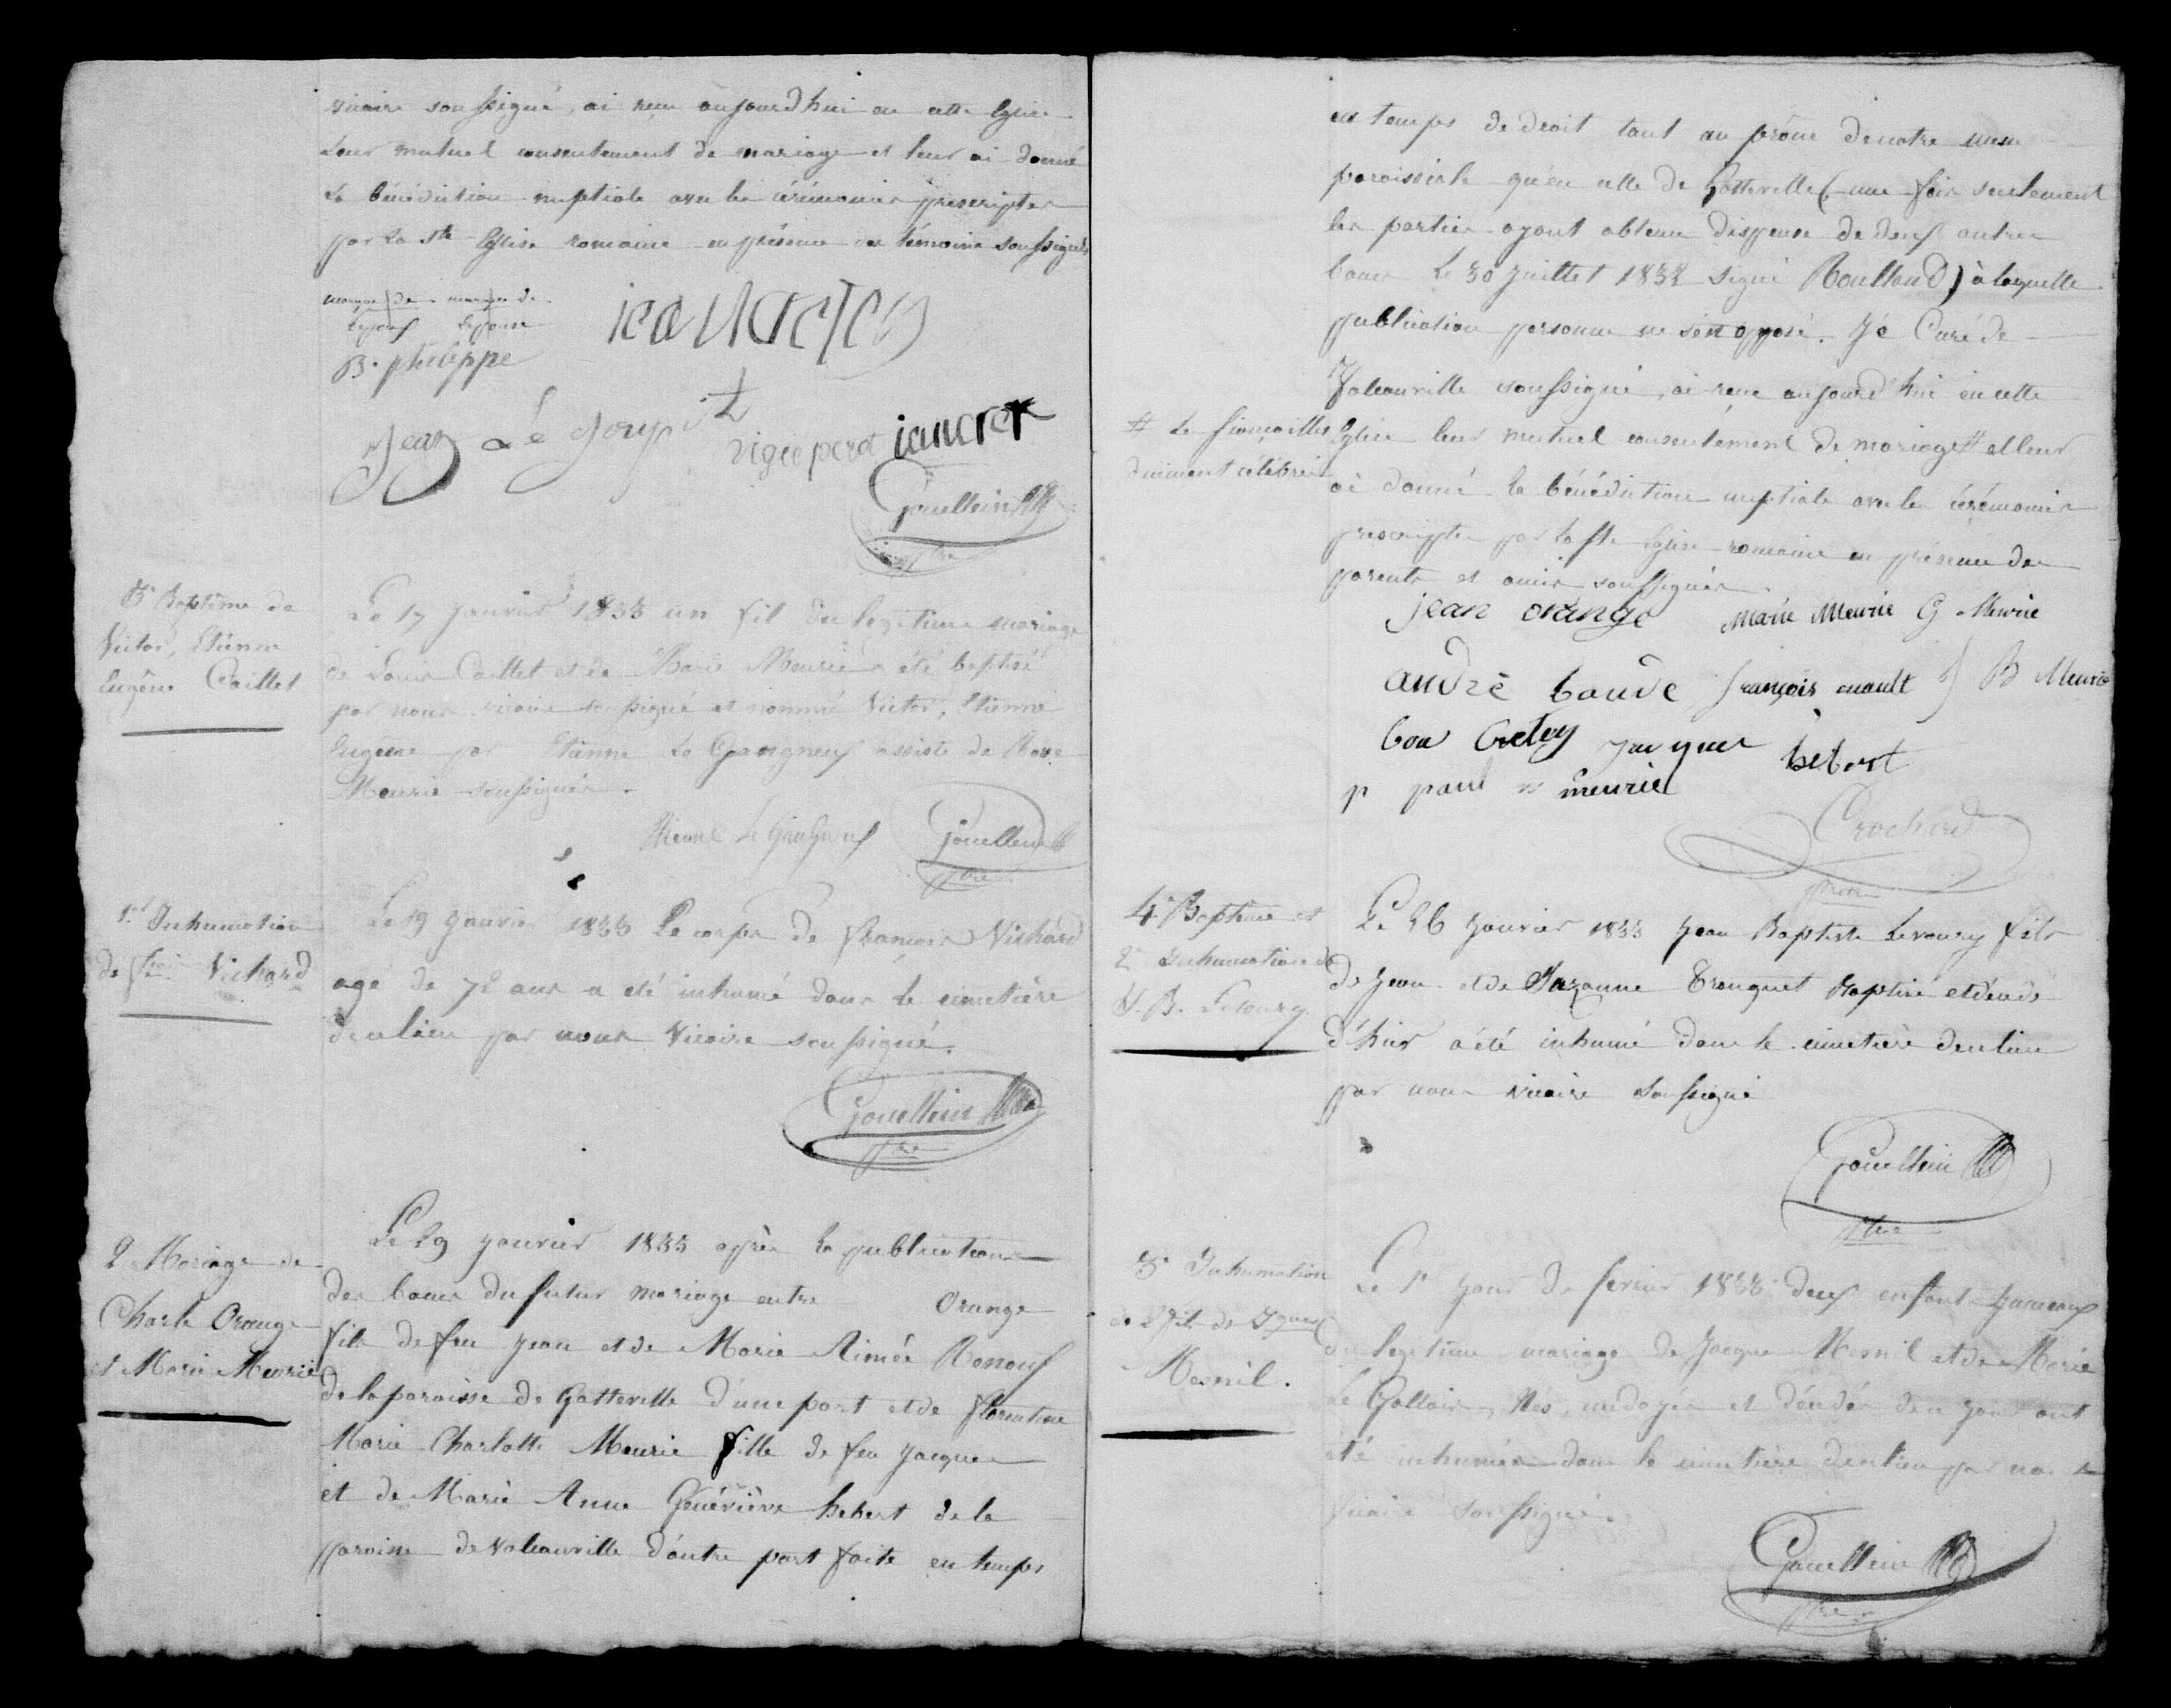 vicaire soussigné, ai reçu aujourd'hui en cette Eglise
Leur mutuel consentement de mariage et leur ai donné
La bénédiction nuptiale avec les cérémonies prescriptes
par La Ste Eglise romaine en présence des témoins soussignés
marque de marque de
L'epoux L'epouse
B. philippe
Jean Le
Gouellain
ptre
3e Baptême de
Victor, Etienne
Eugène Caillet
Le 17 Janvier 1833 un fil du legitime mariage
de Louis Caillet et de Marie Meurie a été baptisé
par nous vicaire soussigné et nommé Victor, Etienne
Eugène par Etienne Le Gavigneux assisté de Rose
Meurie soussignés.
Etienne
Gouellain
ptre
1re Inhumation
de fois Vichard
Le 19 Janvier 1833 Le corps de francois Vichard
agé de 72 ans a été inhumé dans le cimetière
de ce lieu par nous Vicaire soussigné.
Gouellain
ptre
2 Mariage de
Charle Orange
et Marie Meurie
Le 29 Janvier 1833 après la publication
des bans du futur mariage entre Orange
fils de feu Jean et de Marie Aimée Renouf
de la paroisse de Gatteville d'une part et de florentine
Marie Charlotte Meurie fille de feu Jacques
et de Marie Anne Geneviève hebert de la
paroisse de Valcanville d'autre part faite en temps
en temps de droit tant au prône de notre messe
paroissiale qu'en celle de Gatteville (une fois seulement
les parties ayant obtenu dispense de deux autres
bans Le 30 Juillet 1832 signé ) à laquelle
publication personne ne s'est opposé. Je Curé de
Valcanville soussigné, ai reçu aujourd'hui en cette
Eglise leur mutuel consentement de mariage # et leur
# Les fiançailles
duement célébrées
ai donné la bénédiction nuptiale avec les cérémonies
prescriptes par La Ste Eglise romaine en présence des
parents et amis soussignés.
jean orange marie Meurie G Meurie
andré baude françois B Meurie
bon jacques hebert
p paul meurie
Crochard
4e Baptême et
2e Inhumation de
J. B. Levoury
Le 26 Janvier 1833 Jean Baptiste Levoury fils
de Jean et de Suzanne Trouquet Baptisé et décédé
d'hier a été inhumé dans le cimetière de ce lieu
par nous vicaire soussigné
Gouellain
ptre
3e Inhumation
de 2 fils de Jques
Mesnil.
Le 1er jour de fevrier 1833 deux enfants Jumeaux
du legitime mariage de Jacques Mesnil et de Marie
Le Gallois, Nés, ondoyés et décédés de ce jour ont
été inhumés dans le cimetière de ce lieu par nous
vicaire soussigné.
Gouellain
ptre